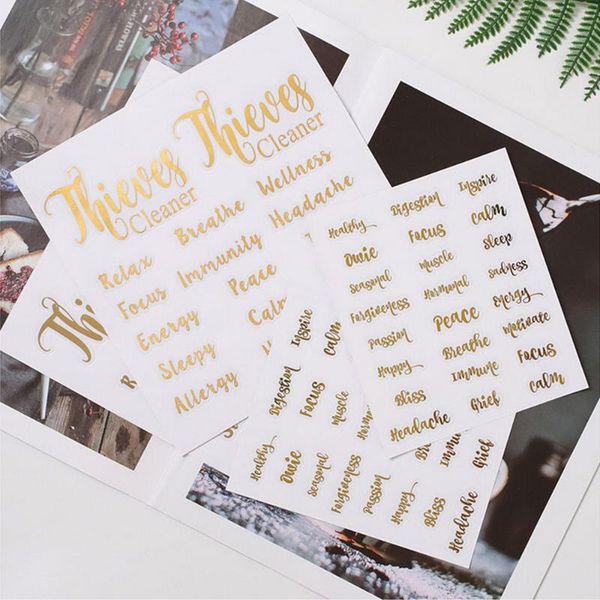 Thieves Thieves
Cleaner Cleaner
Relax Breathe Wellness
Focus Immunity Headache
Energy Peace
Sleepy Calm
Allergy
Healthy Digestion Inspire
Owie Focus Calm
Seasonal Muscle Sleep
Forgiveness Hormonal Sadness
Passion Peace Energy
Happy Breathe Motivate
Bliss Immune Focus
Headache Grief Calm
Digestion Focus Inspire
Muscle Calm
Healthy
Owie
Seasonal
Forgiveness
Passion
Happy
Bliss
Headache
Grief